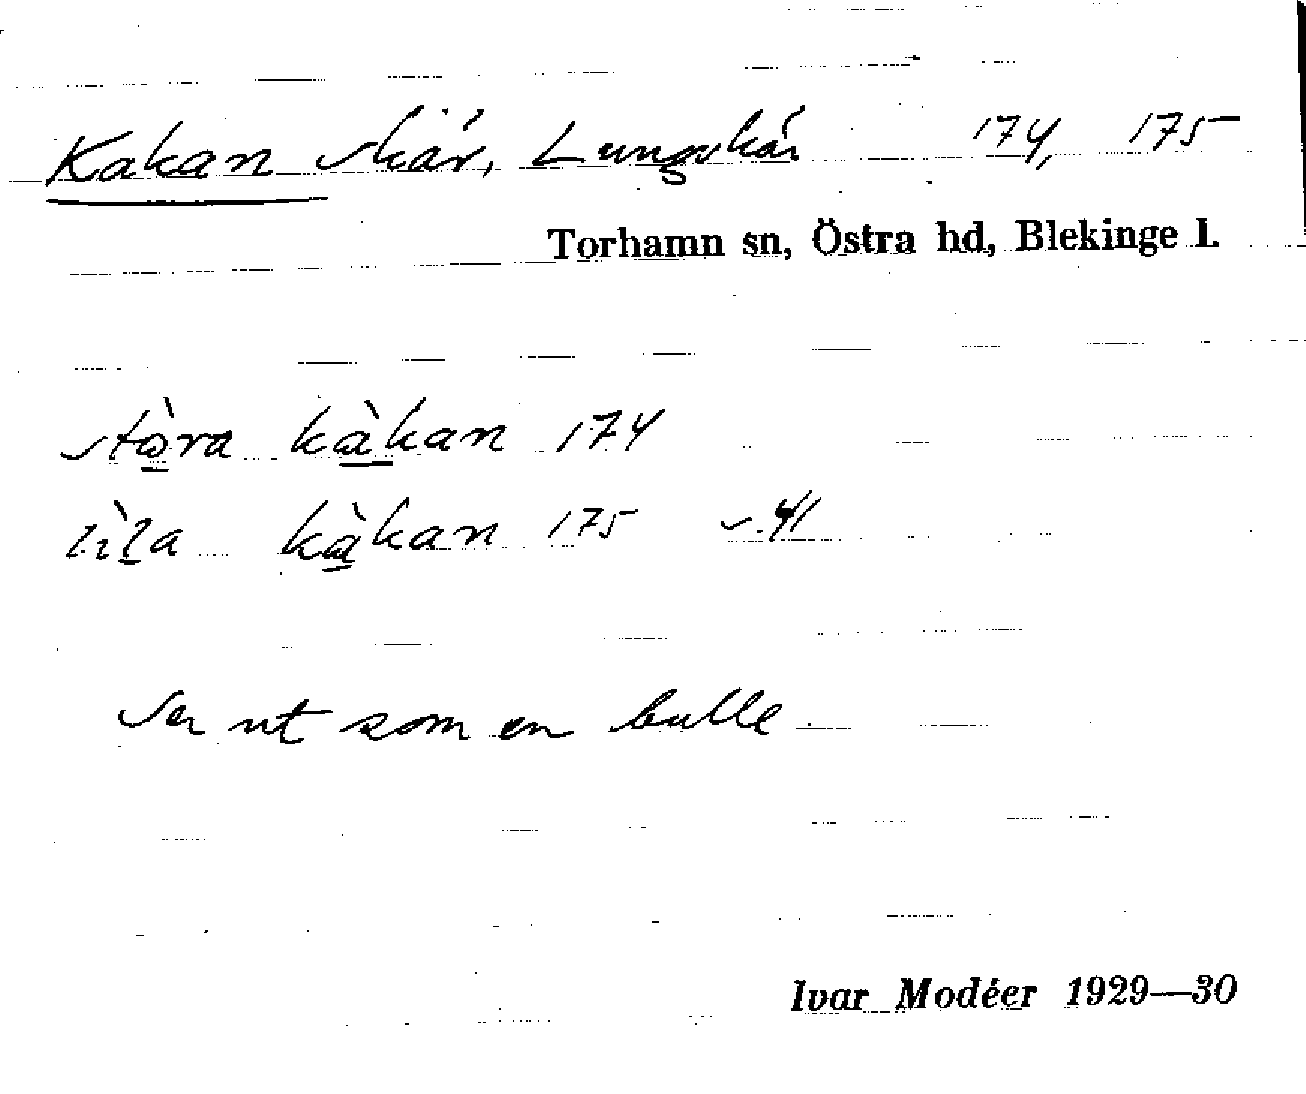 Kakan skär, Lungskär 174, 175
Torhamn sn, Östra hd, Blekinge l.
stòra kàkan 174
lìla kàkan 175 s. 41
Ser ut som en bulle
Ivar Modéer 1929—30